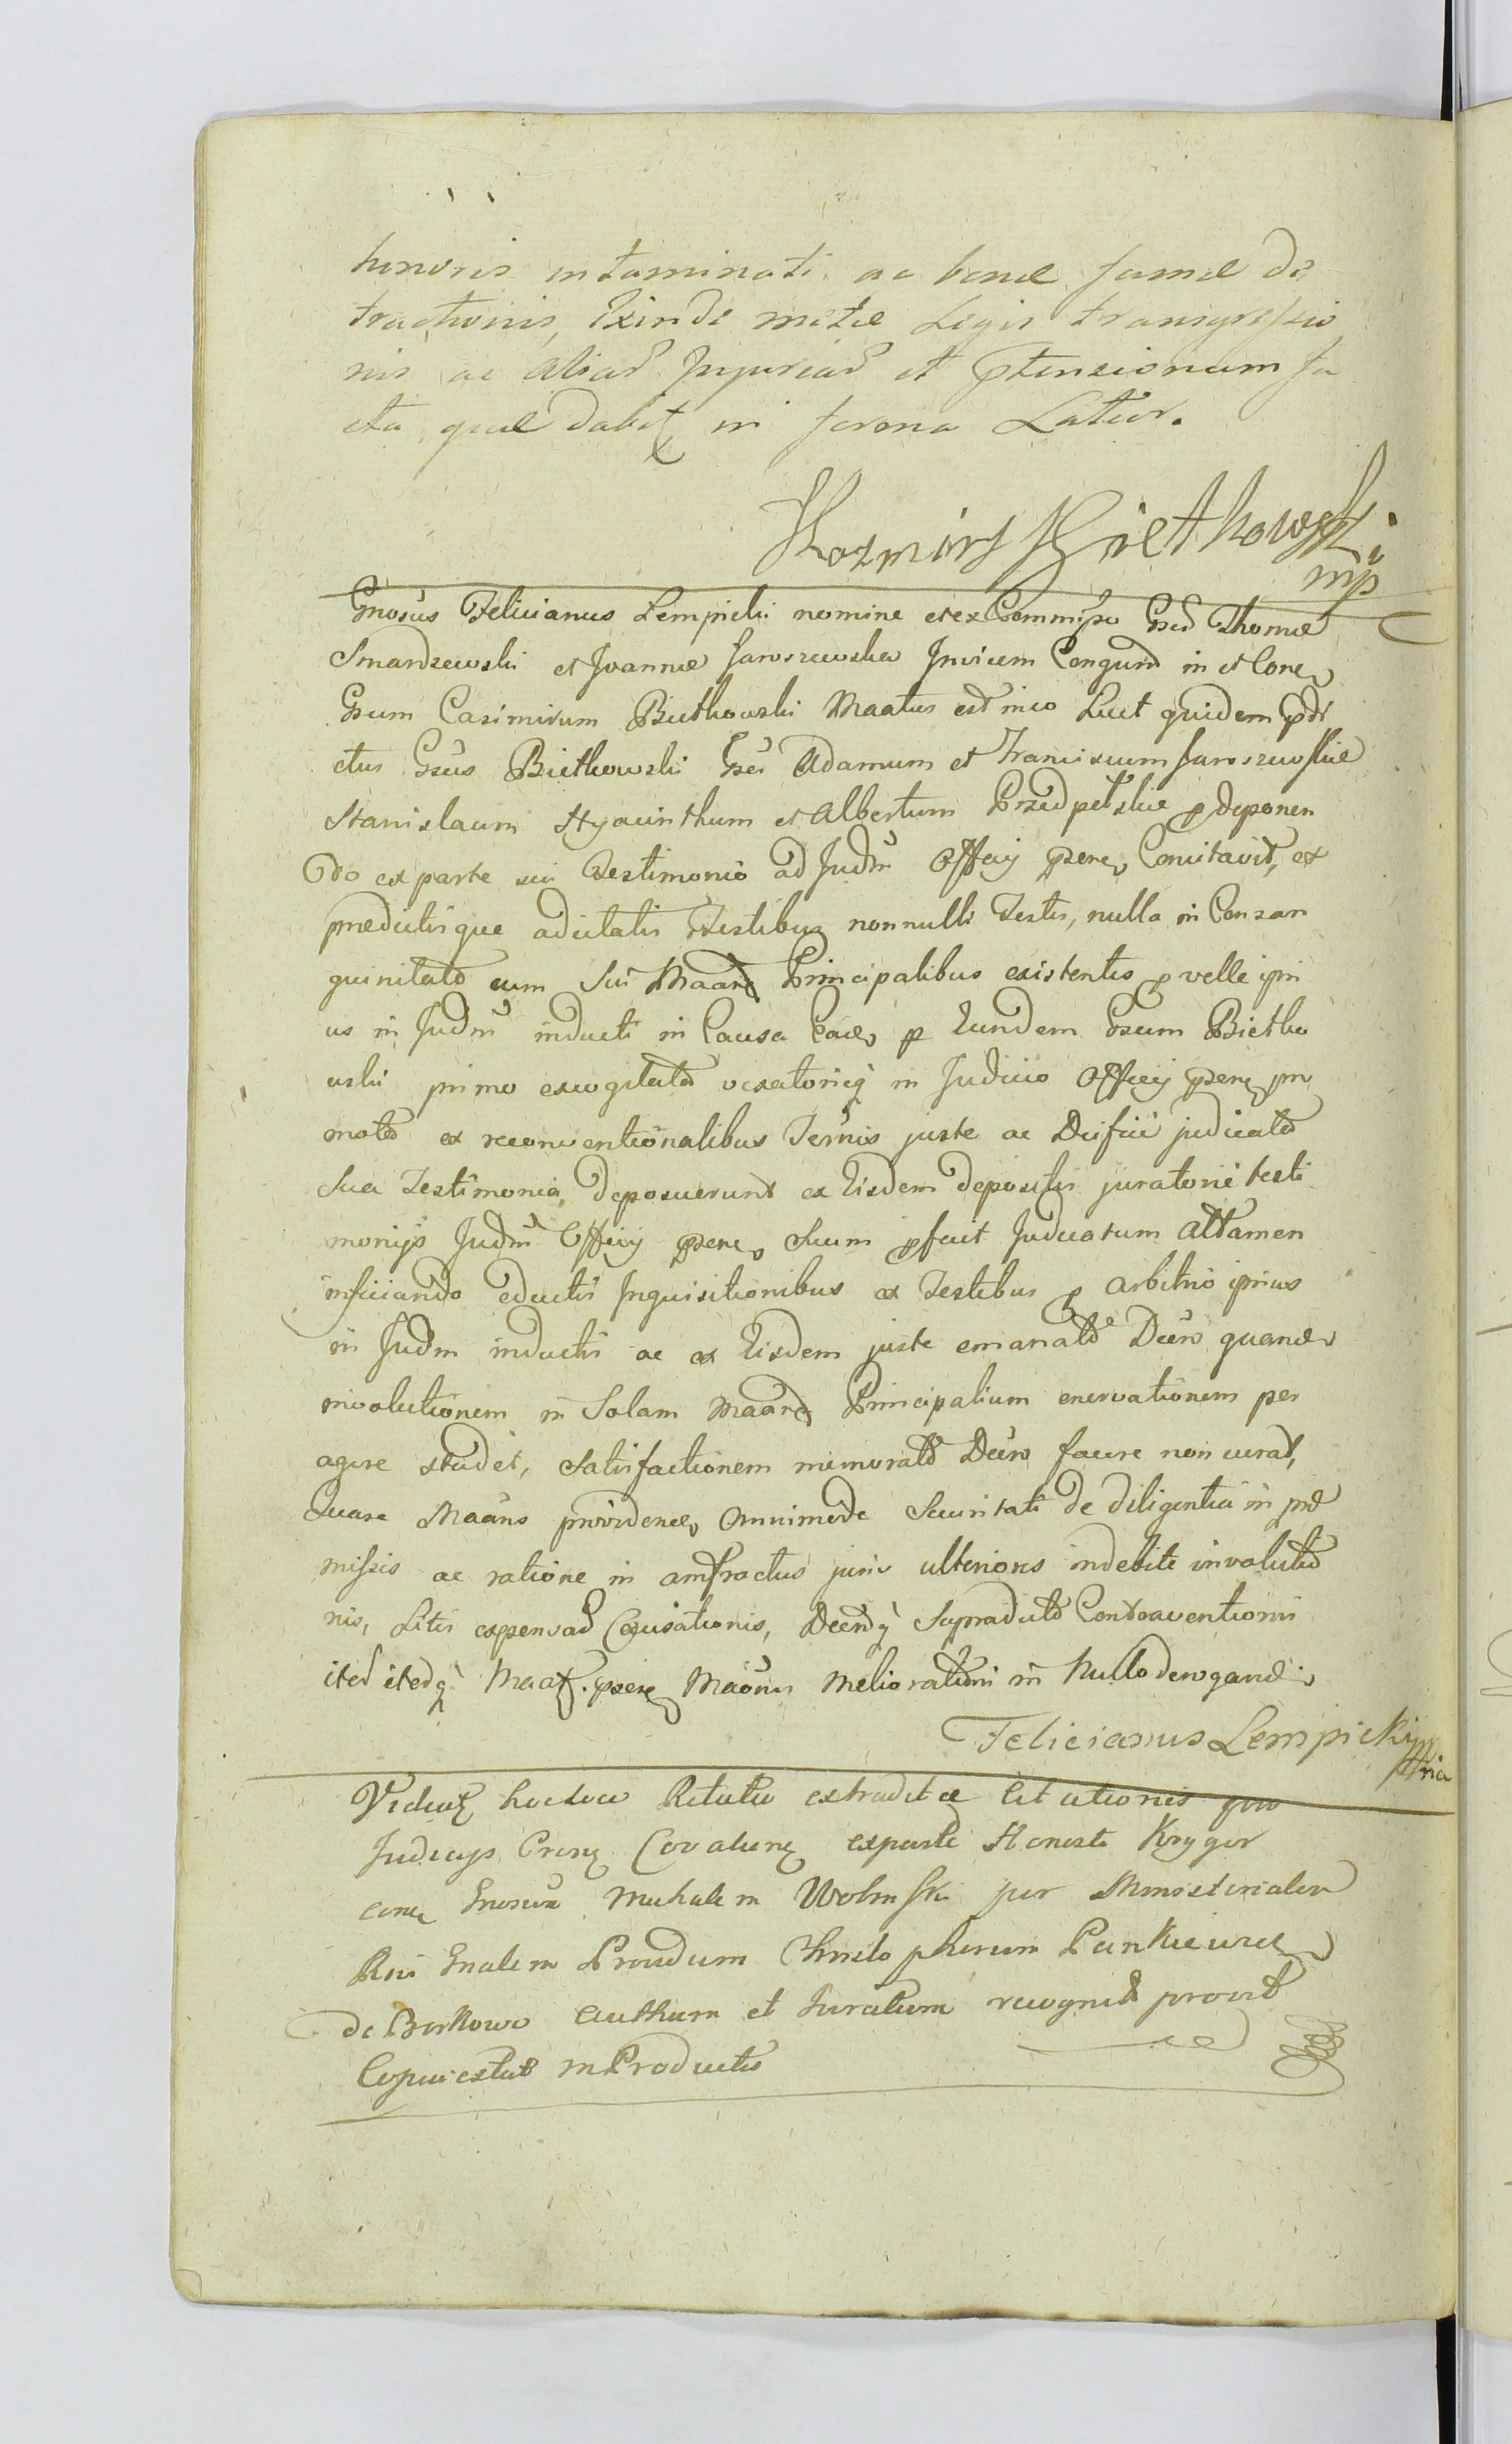 honoris intaminati ac bonæ famæ de
tractionis, Exinde metæ Legis transgressio
nis ac aliar Injuriar et Ptensionum fa
cta, quæ dabit in forma Latior.
Kazmirz Bietkowski
mp
Gnosus Felicianus Lempicki nomine et ex Commisso Gsor Thomæ
Smardzewski et Joannæ Jaroszewska Invicem Congum in et Conc
Gsum Casimirum Bietkowski Maatus est in eo Licet quidem pdi
ctus Gsus Bietkowski Gsos Adamum et Franciscum Jaroszewskie
Stanislaum Hyacinthum et Albertum Przedpelskie p deponen
do ex parte sui Testimonio ad Judm Officy psens Concitavit, ex
prædictisque adcitatis Testibus nonnulli Testes, nulla in Consan
guinitate cum Sui Maans Principalibus existentes p velle ipsi
us in Judm inducti in Causa eac p Eundem Gsum Bietko
wski primo excogitate vexatorieq in Judicio Officy psens pro
mota ex reconventionalibus Ternis juste ac Deifice judicata
Sua Testimonia, deposuerunt ex Eisdem depositis juratorie testi
monijs Judm Officy psens Suum pfecit Judicatum attamen
inficiando eductis Inquisitionibus ex Testibus p arbitrio ipsius
in Judm inductis ac ex Eisdem juste emanato Decro quand
involutionem in Solam Maans Principalium enervationem per
agere studet, Satisfactionem memorato Decro facere non curat,
Quare Maans providend omnimode Securitati de diligentia in præ
missis ac ratione in amfractus juris ulterioris indebite involutio
nis, Litis expensar Causationis, Decrq Supradicto Contraventionis
iter iterq Maat. psens Maonis melioratini in Nullo derogand
Felicianus Lempicki mppria
Vidug hocloco Relatio extraditæ Citationis pro
Judicys Crens Covaliens ex parte Honesti Kryger
conc Gnosum Michalem Wolinski per Ministerialem
Rni Gnalem Providum Christophorum Pankiewicz
de Borkowo authum et Juratum recognit prout
Copia extat in Productis